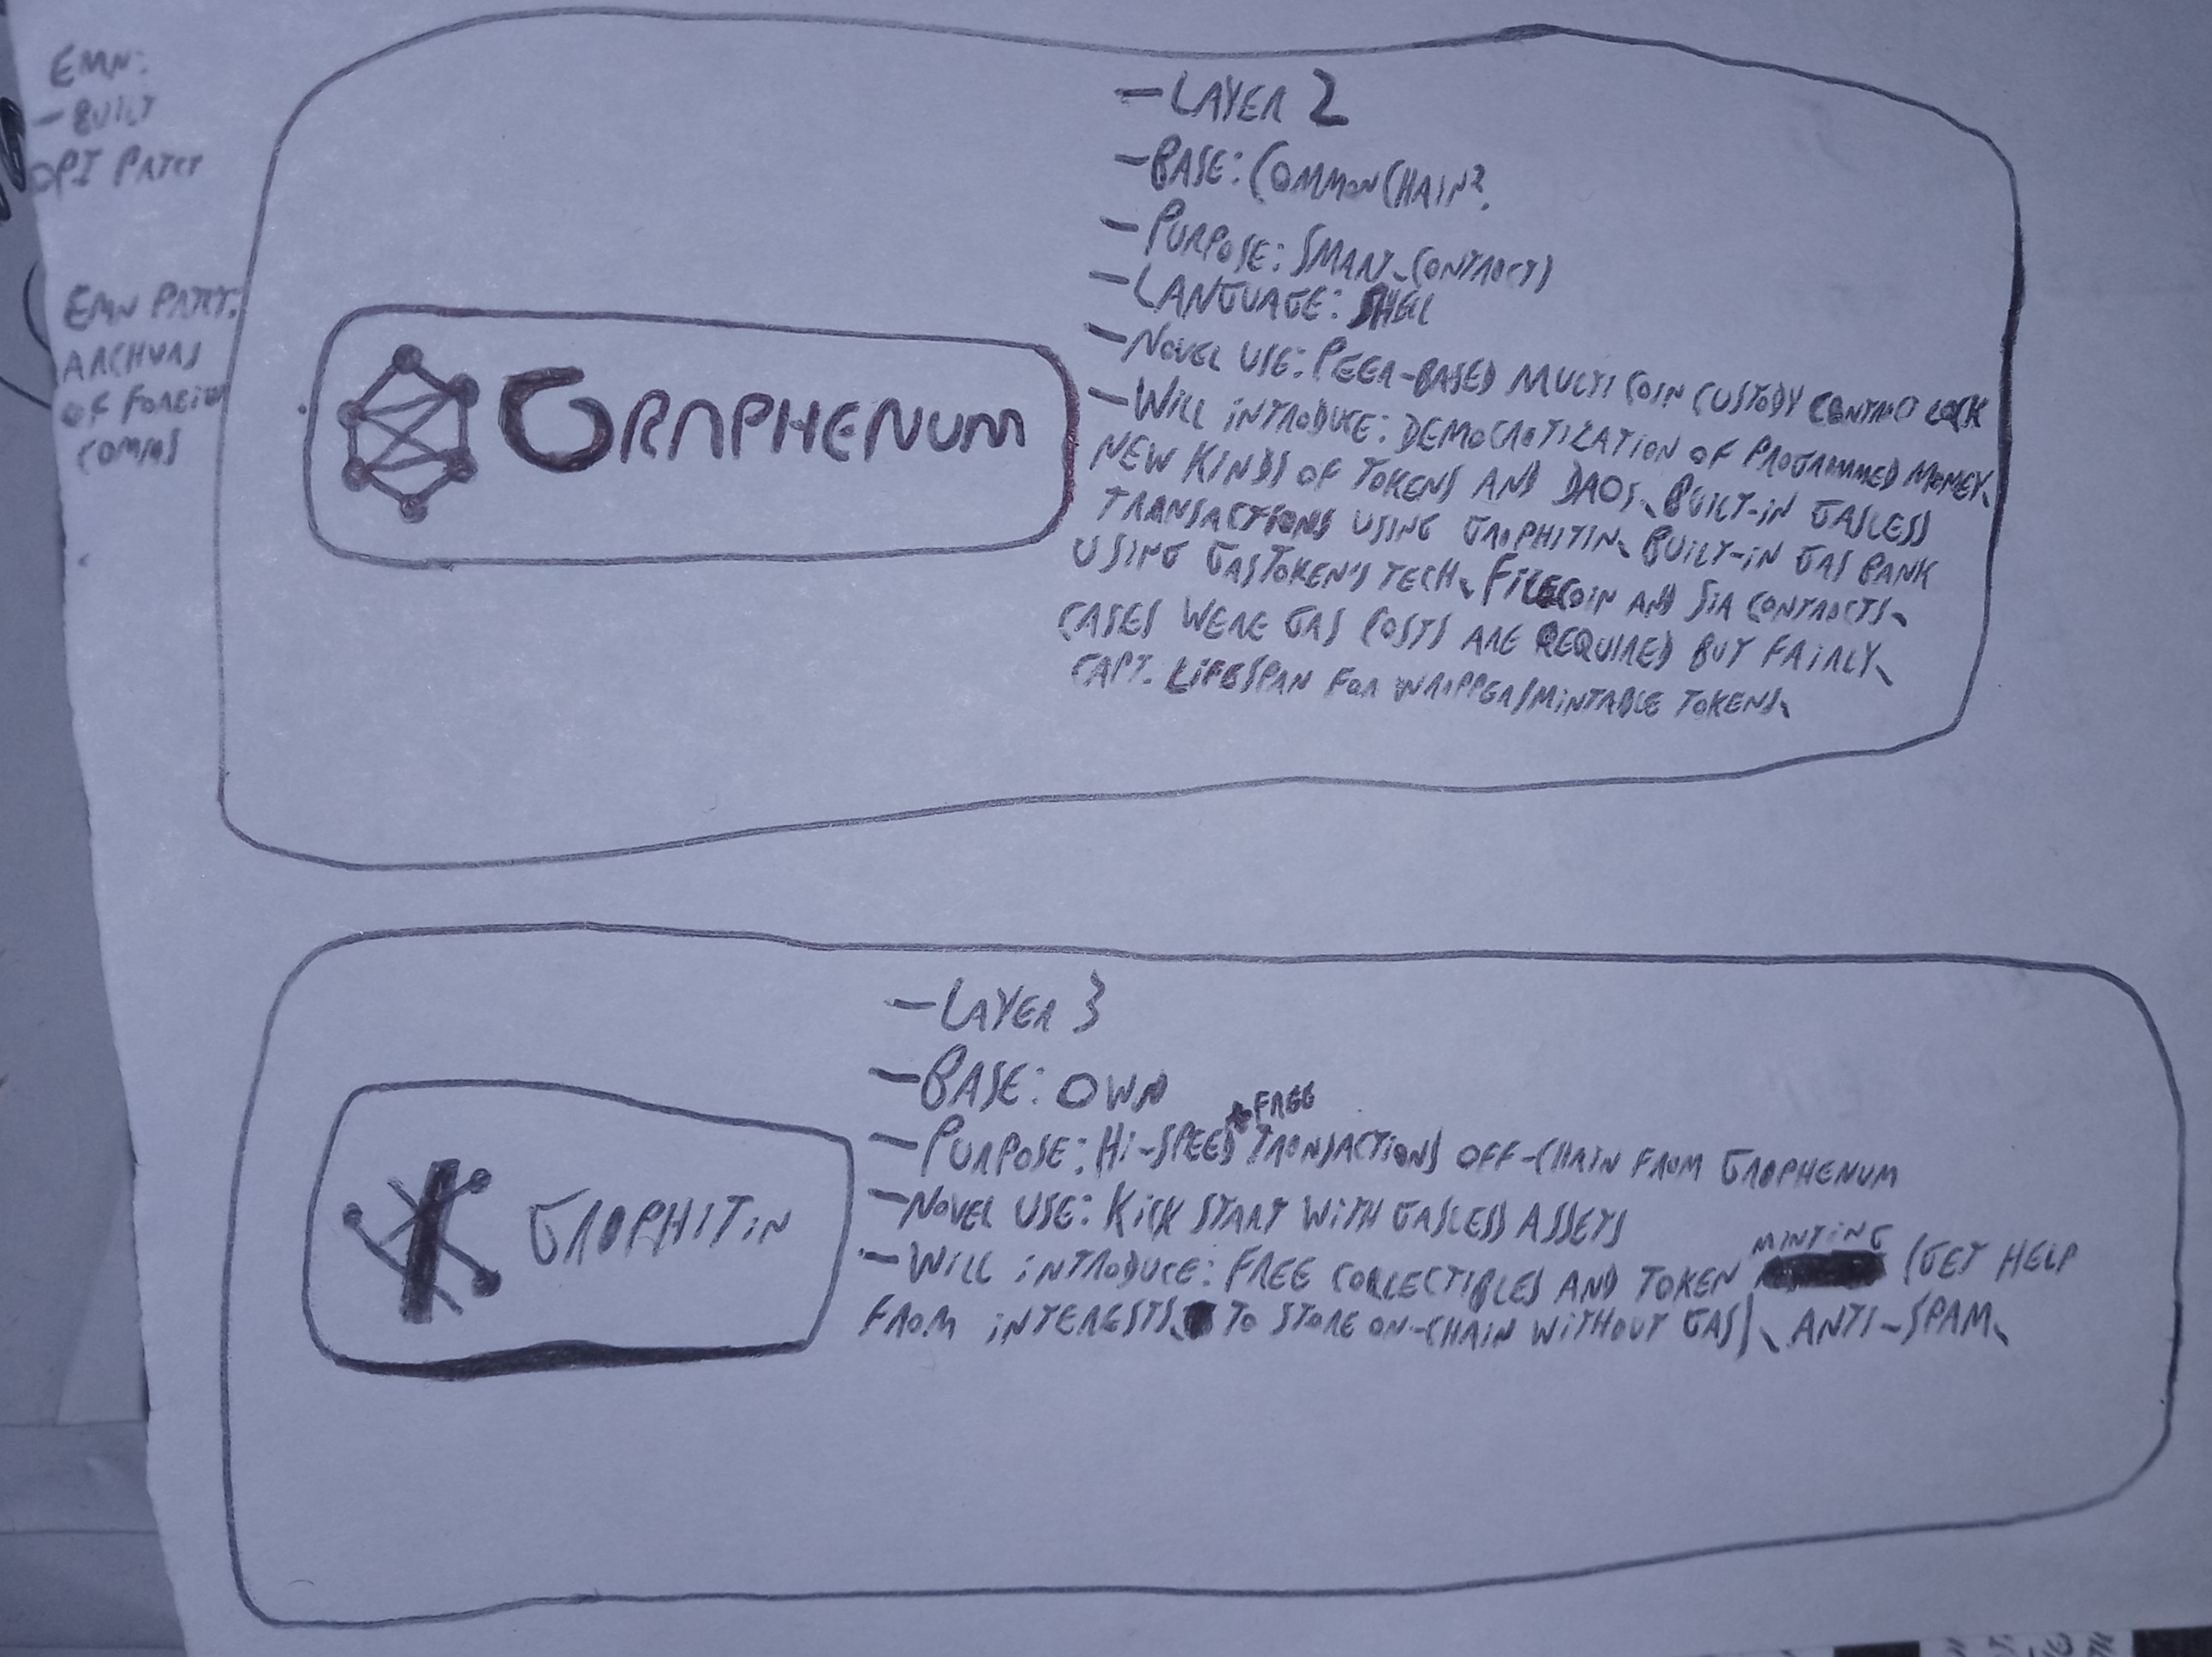 EMN:
- BUILT
OPI PATCT
EMN PATCT:
OF FOREIGN
COMMS
- LAYER 2
- BASE: COMMONCHAIN?
- PURPOSE: SMART-CONTRACTS
- LANGUAGE: SHELL
- NOVEL USE: PEER-BASED MULTI COIN CUSTODY CONTRACT LOCK
- WILL INTRODUCE: DEMOCRATIZATION OF PROGRAMMED MONEY,
NEW KINDS OF TOKENS AND DAOS, BUILT-IN GASLESS
TRANSACTIONS USING GRAPHITIN, BUILT-IN GAS BANK
USING GASTOKEN'S TECH, FILECOIN AND SIA CONTRACTS,
CASES WERE GAS COSTS ARE REQUIRED BUT FAIRLY,
CAPT. LIFESPAN FOR WRAPPER/MINTABLE TOKENS,
GRAPHENUM
- LAYER 3
- BASE: OWN
+ FREE
- PURPOSE: HI-SPEED TRANSACTIONS OFF-CHAIN FROM GRAPHENUM
- NOVEL USE: KICK START WITH GASLESS ASSETS
MINTING
- WILL INTRODUCE: FREE COLLECTIBLES AND TOKEN (GET HELP
FROM INTERESTS, TO STORE ON-CHAIN WITHOUT GAS), ANTI-SPAM,
GRAPHITIN